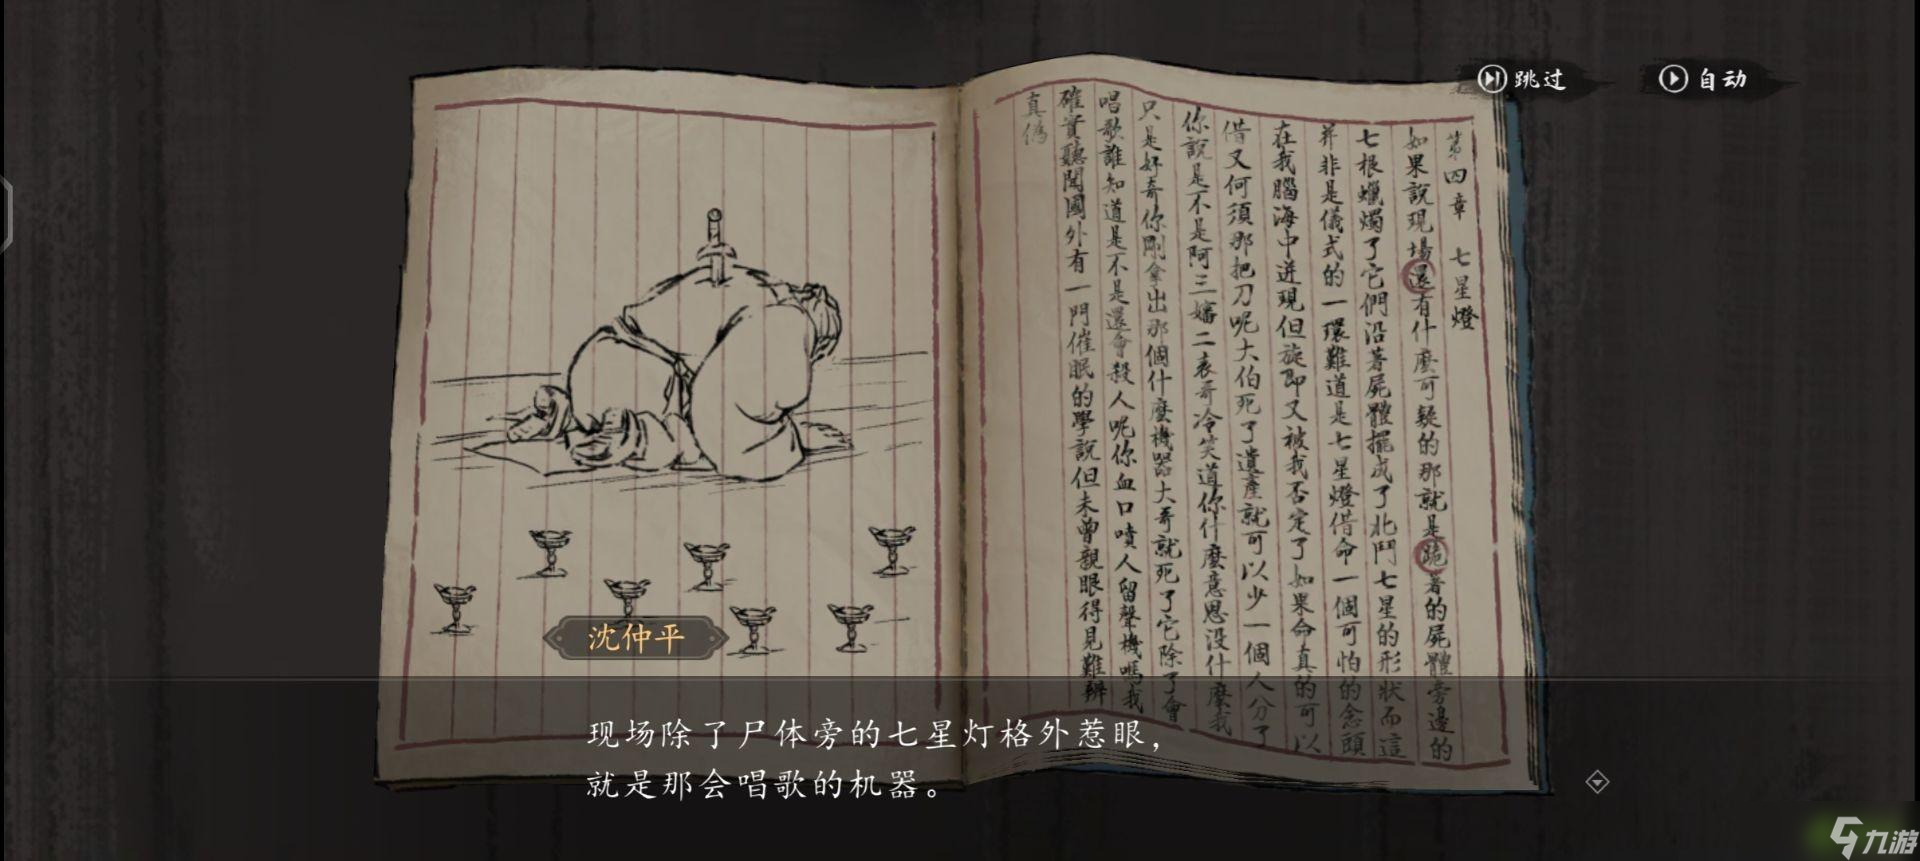 跳过
自动
第四章 七星燈
如果說現場還有什麼可疑的那就是跪著的屍體旁邊的
七根蠟燭了它們沿著屍體擺成了北鬥七星的形狀而這
并非是儀式的一環難道是七星燈借命一個可怕的念頭
在我腦海中迸現但旋即又被我否定了如果命真的可以
借又何須那把刀呢大伯死了遺產就可以少一個人分了
你說是不是阿三嬸二表哥冷笑道你什麼意思沒什麼我
只是好奇你剛拿出那個什麼機器大哥就死了它除了會
唱歌誰知道是不是還會殺人呢你血口噴人留聲機嗎我
確實聽聞國外有一門催眠的學說但未曾親眼得見難辨
真偽
沈仲平
现场除了尸体旁的七星灯格外惹眼，
就是那会唱歌的机器。
九游